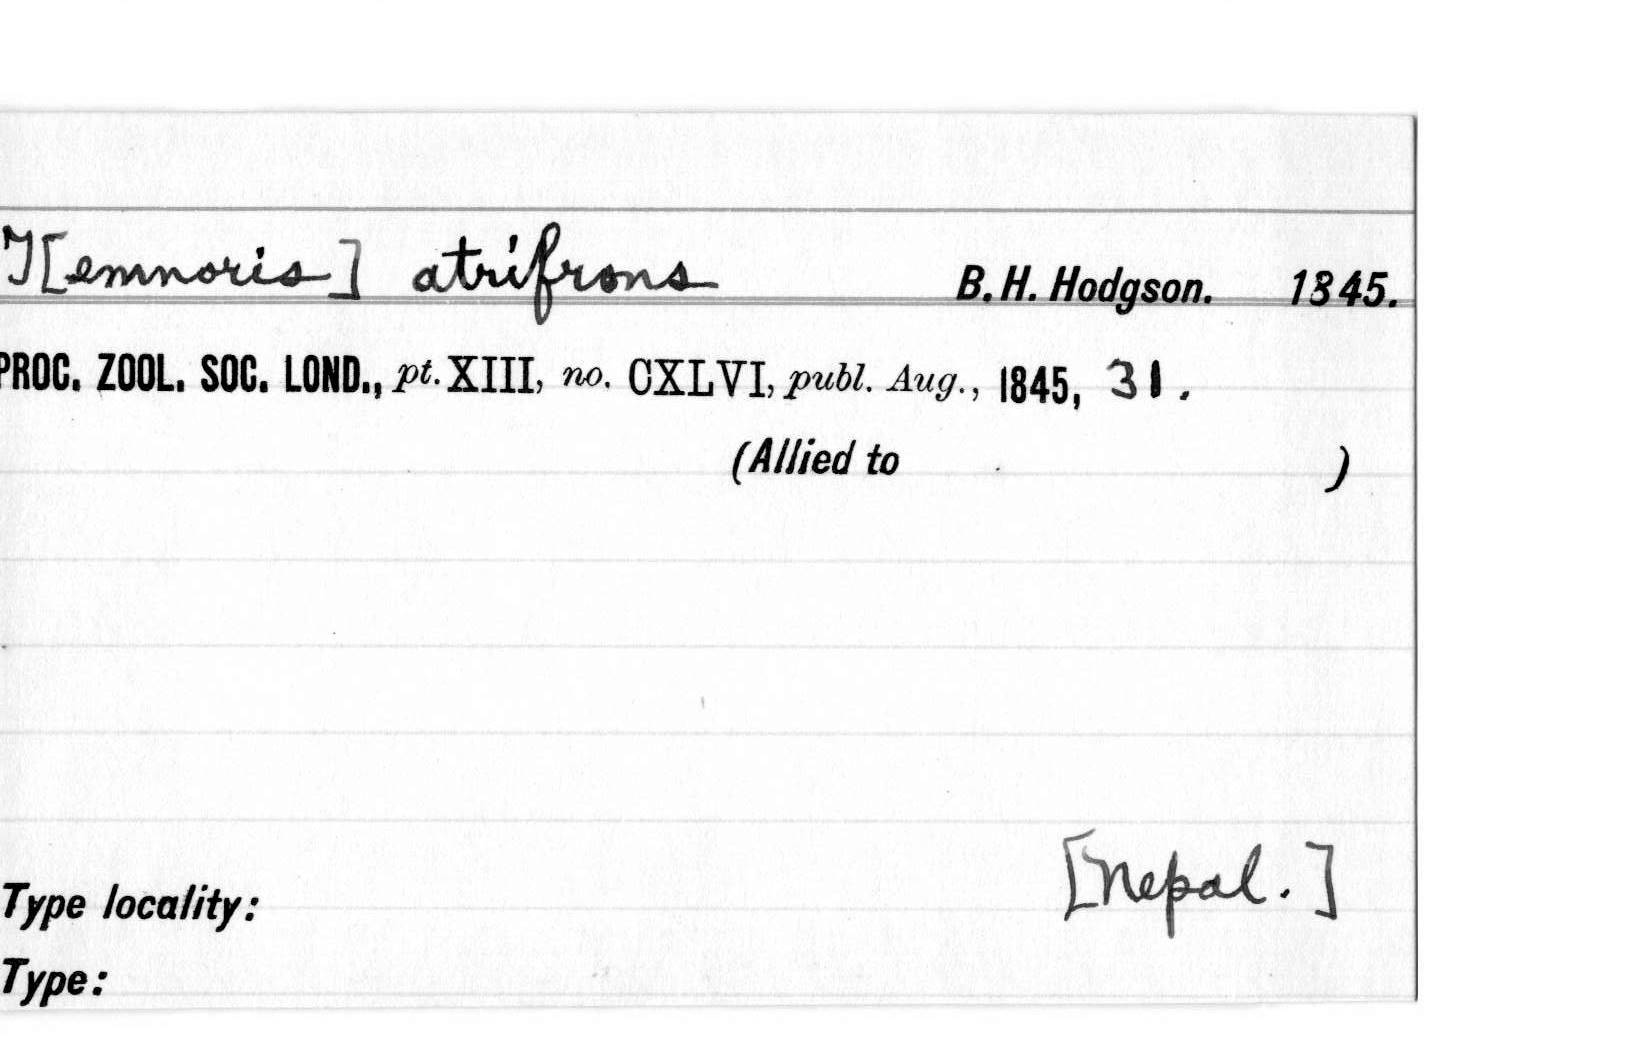 T[emnoris] atrifrons B. H. Hodgson. 1845.
PROC. ZOOL. SOC. LOND., pt. XIII, no. CXLVI, publ. Aug., 1845, 31.
(Allied to )
[Nepal.]
Type locality:
Type: